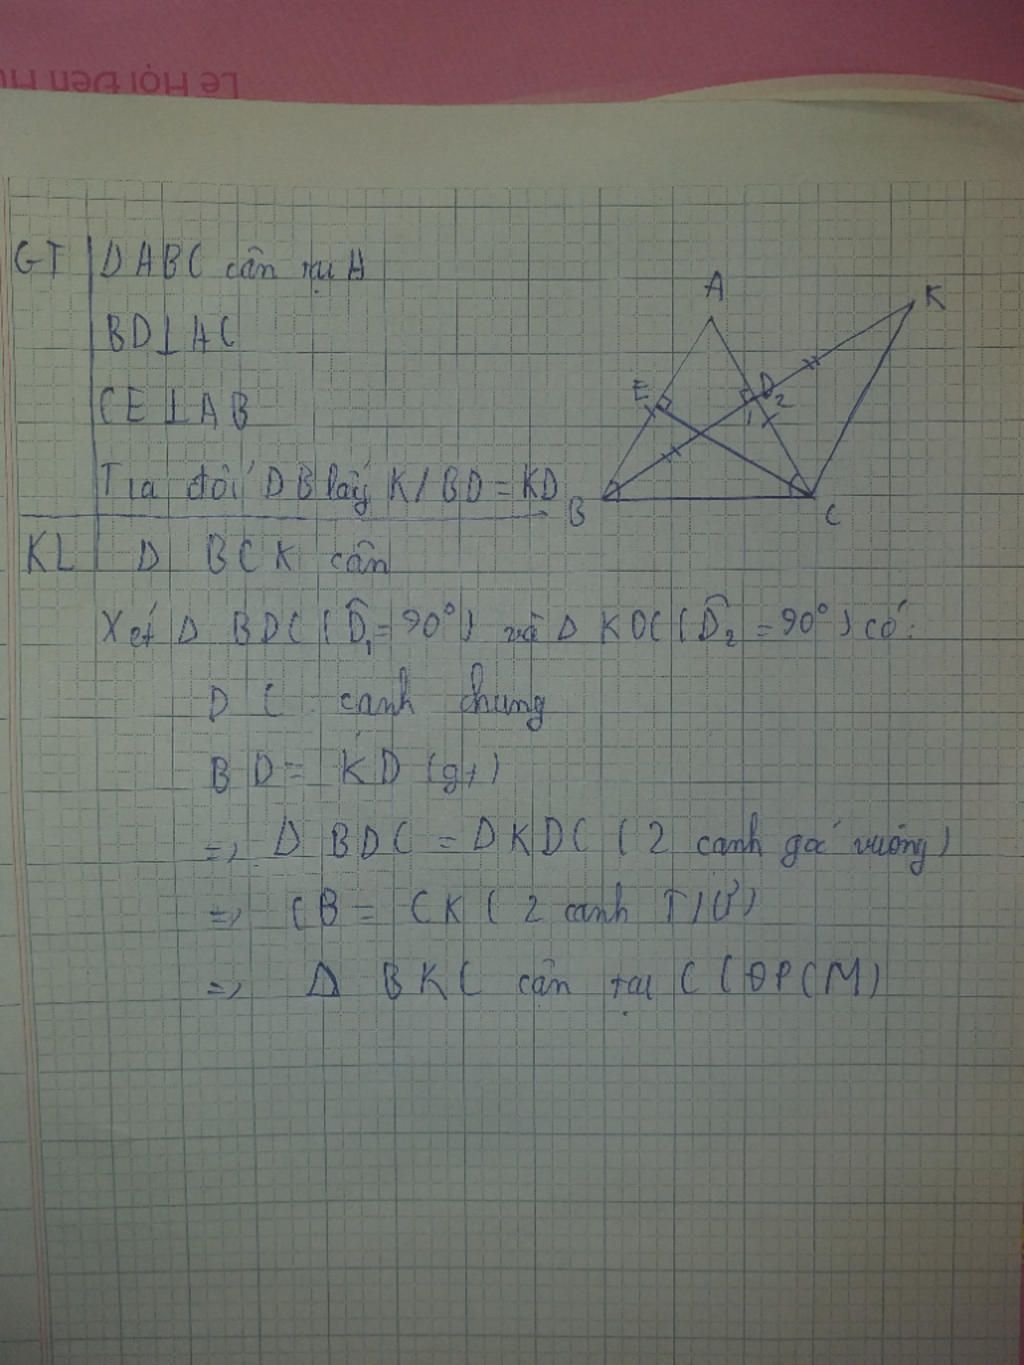 Lễ Hội Đền H
GT ΔABC cân tại A
BD⊥AC
CE⊥AB
Tia đối DB lấy K/BD=KD
KL Δ BCK cân
A
K
E
D
1 2
B
C
Xét Δ BDC (D̂₁=90°) và Δ KDC (D̂₂=90°) có:
DC cạnh chung
BD= KD (gt)
=> Δ BDC = ΔKDC (2 cạnh góc vuông)
=> CB = CK (2 cạnh T/Ư)
=> Δ BKC cân tại C (ĐPCM)